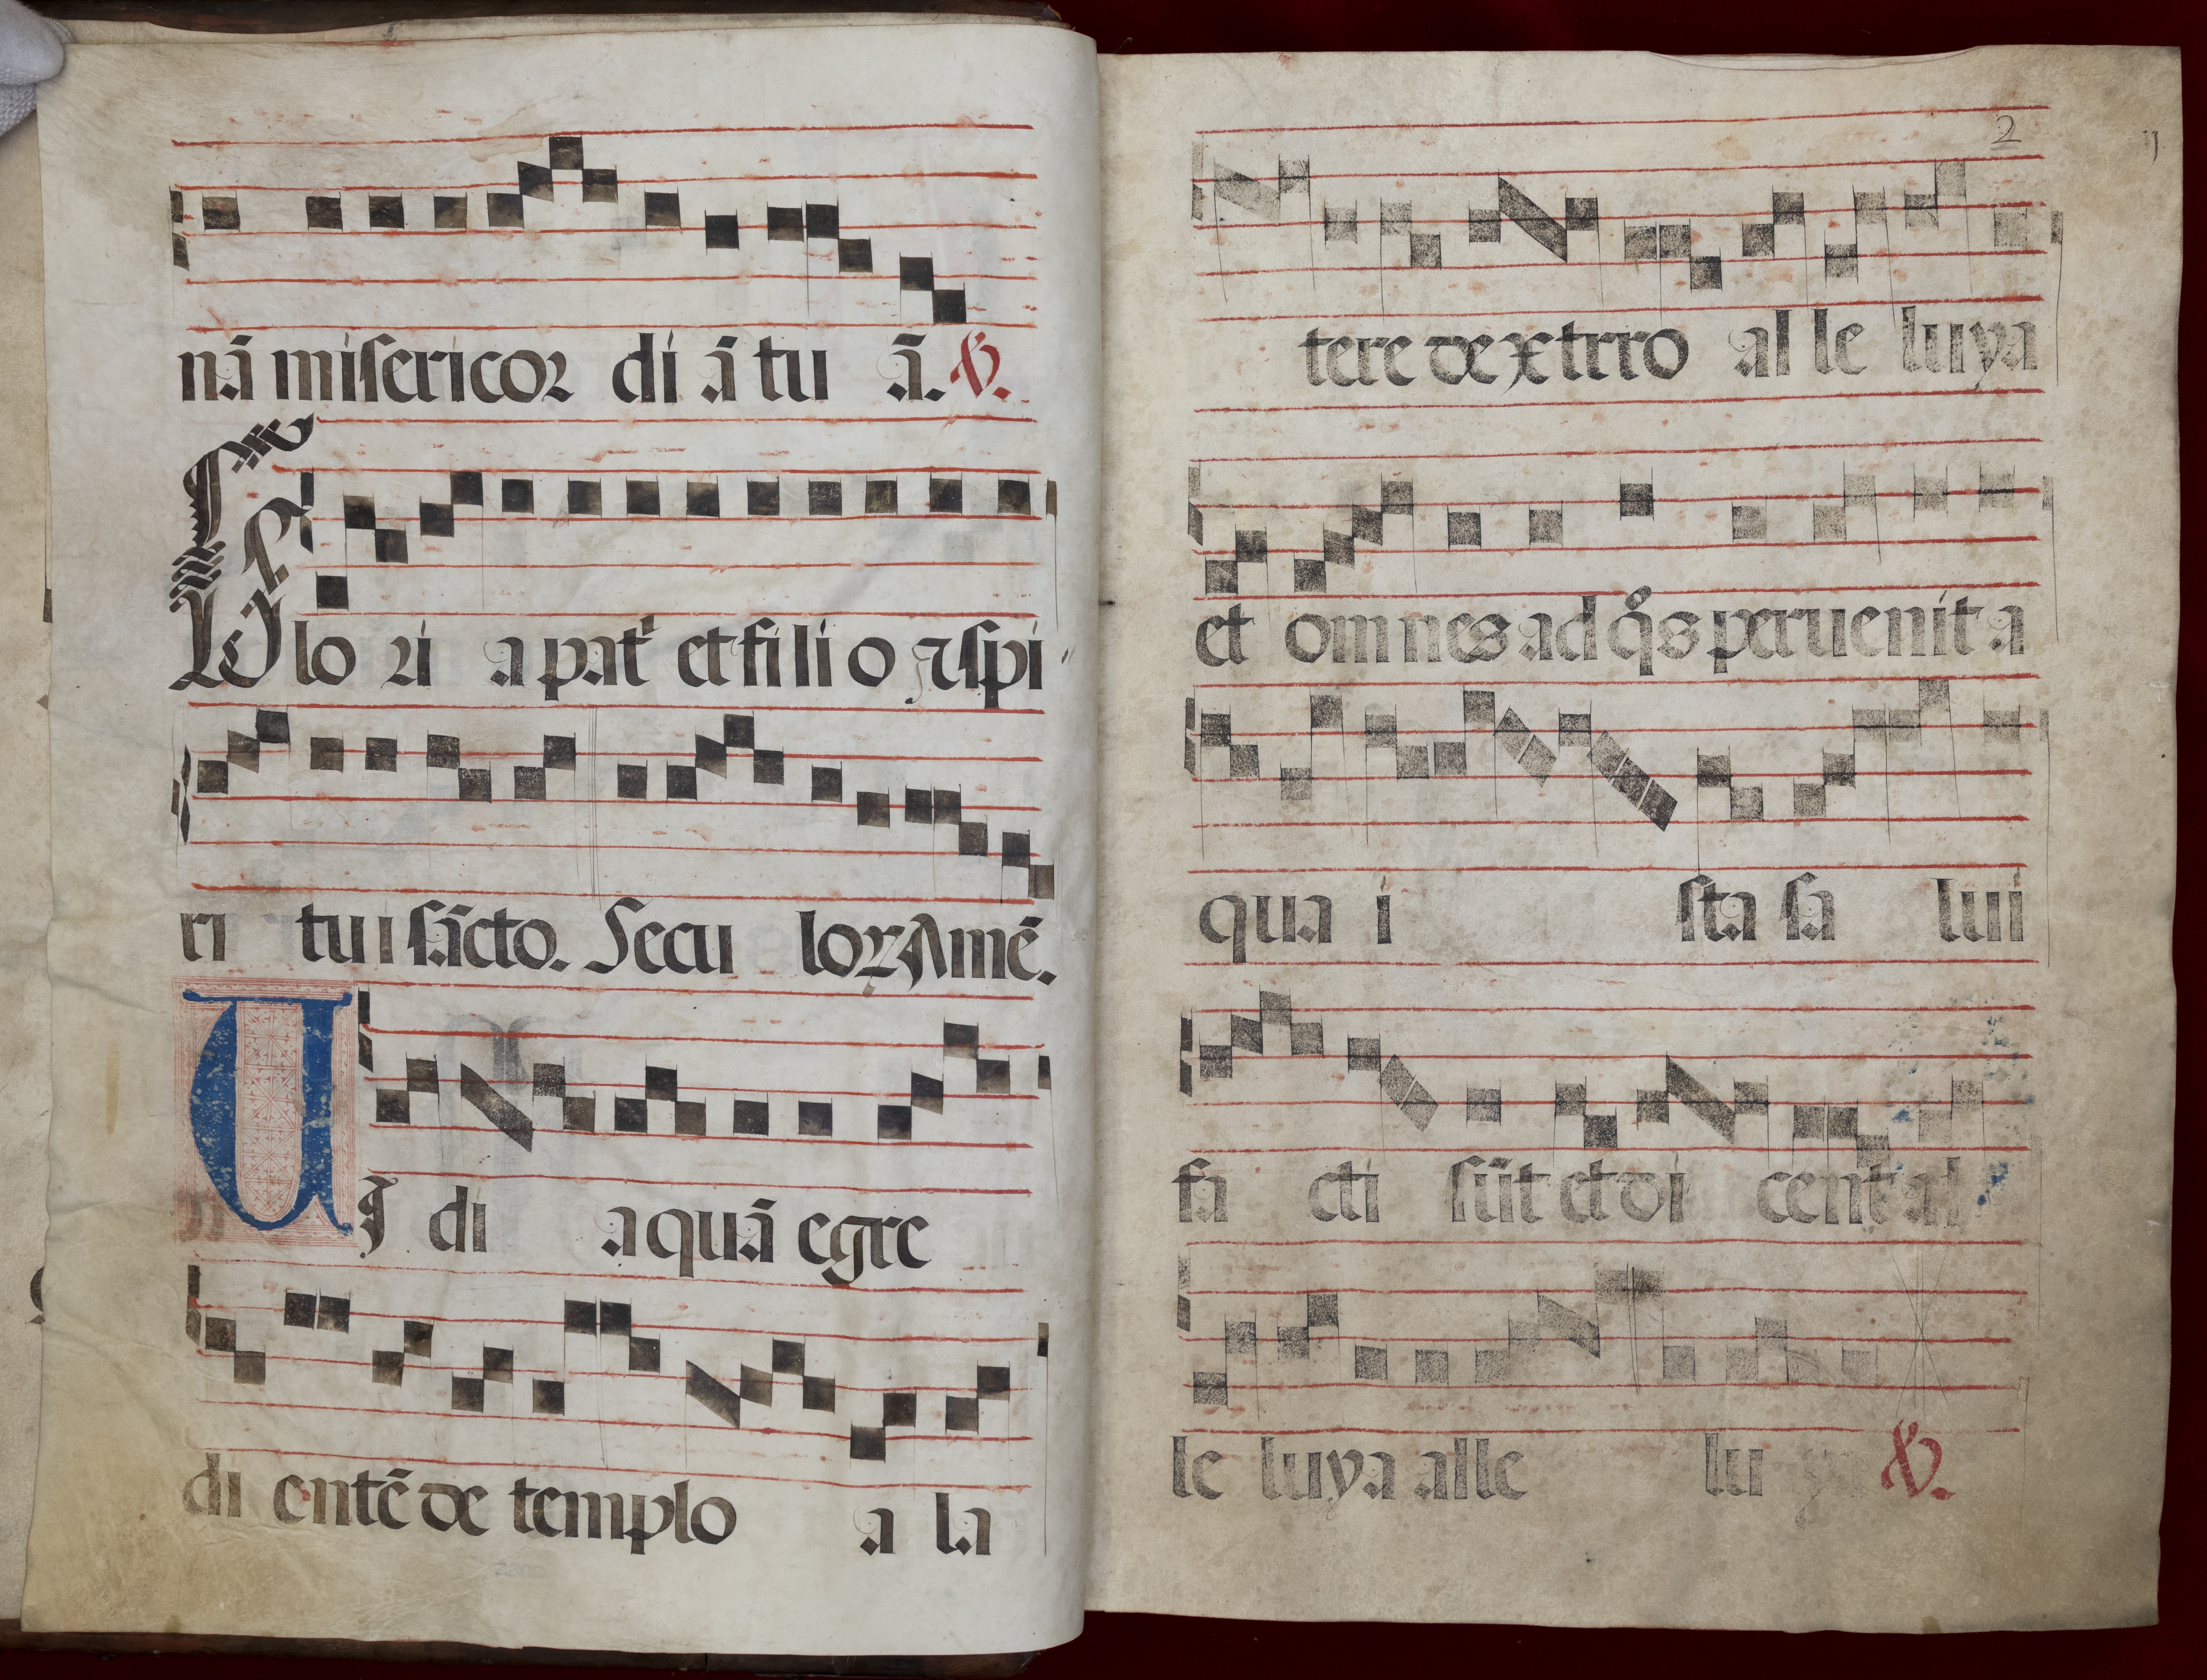 nā misericoꝛ di ā tu ā. ℣.
Glo ꝛi a pat et fi li o ⁊ spi
ri tu i sācto. Secu loꝝ Amē.
UI di a quā egre
di entē de templo a la
2
ij
tere dextrro al le luya
et omnes ad q̊s peruenit a
qua i sta sa lui
fa cti sūt et di cent al
le luya alle lu ya ℣.